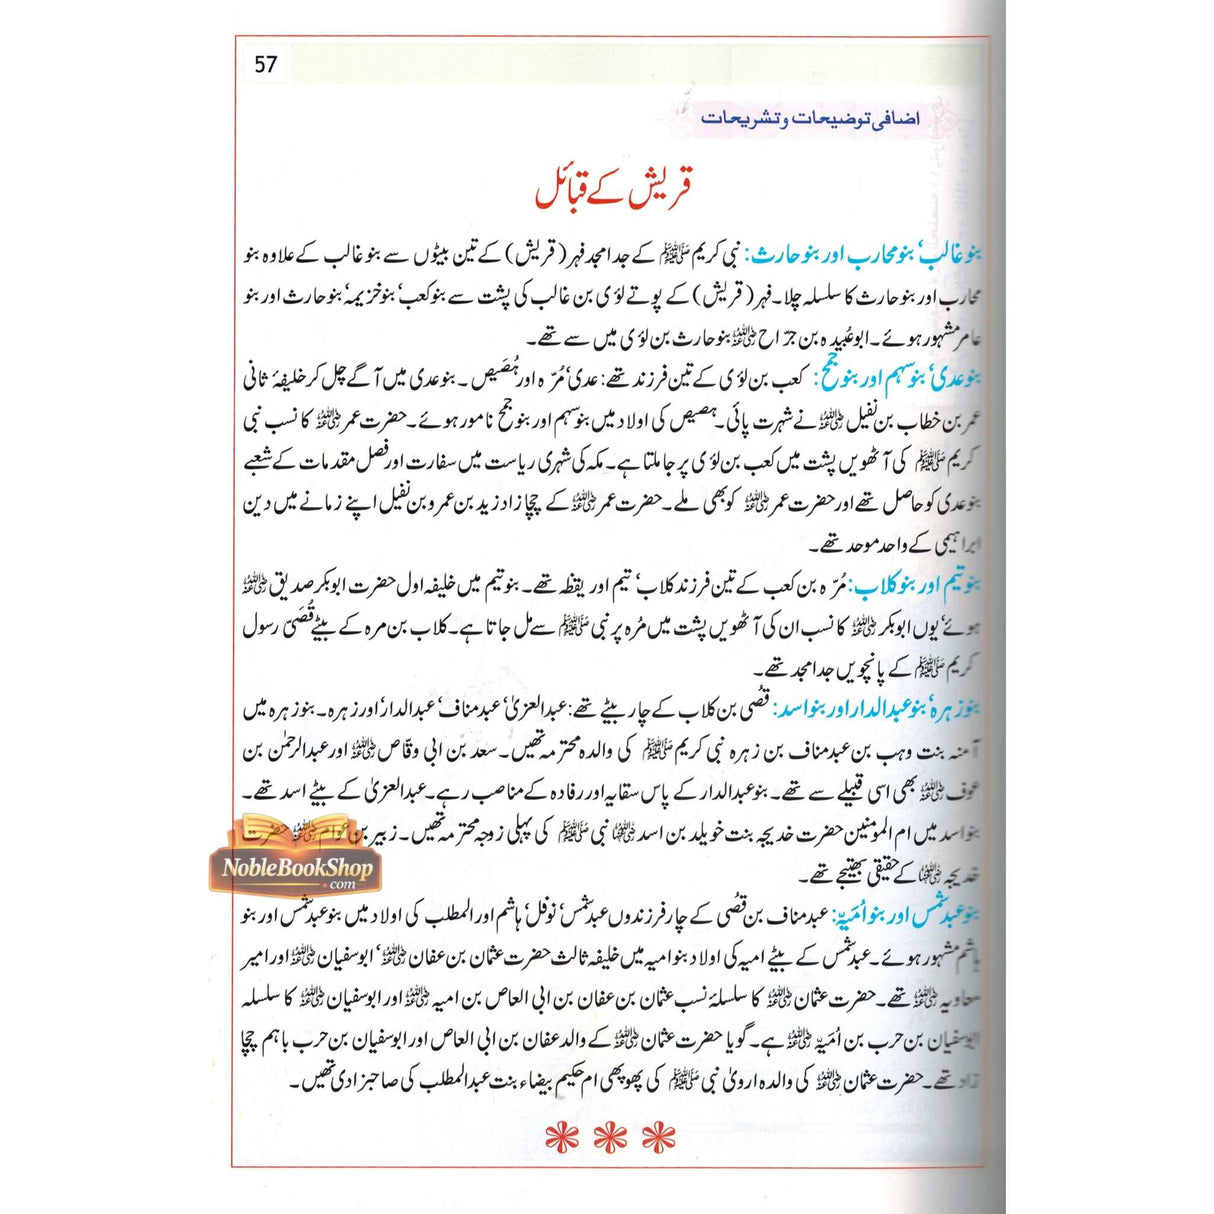 57
اضافی توضیحات و تشریحات
قریش کے قبائل
بنو غالب‘ بنو محارب اور بنو حارث: نبی کریم ﷺ کے جد امجد فہر (قریش) کے تین بیٹوں سے بنو غالب کے علاوہ بنو
محارب اور بنو حارث کا سلسلہ چلا۔ فہر (قریش) کے پوتے لؤی بن غالب کی پشت سے بنو کعب‘ بنو خزیمہ‘ بنو حارث اور بنو
عامر مشہور ہوئے۔ ابو عُبیدہ بن جرّاح رضی اللہ عنہ بنو حارث بن لؤی میں سے تھے۔
بنو عدی‘ بنو سہم اور بنو جمح: کعب بن لؤی کے تین فرزند تھے: عدی‘ مُرّہ اور ہُصَیص۔ بنو عدی میں آگے چل کر خلیفۂ ثانی
عمر بن خطاب بن نفیل رضی اللہ عنہ نے شہرت پائی۔ ہصیص کی اولاد میں بنو سہم اور بنو جمح نامور ہوئے۔ حضرت عمر رضی اللہ عنہ کا نسب نبی
کریم ﷺ کی آٹھویں پشت میں کعب بن لؤی پر جا ملتا ہے۔ مکہ کی شہری ریاست میں سفارت اور فصل مقدمات کے شعبے
بنو عدی کو حاصل تھے اور حضرت عمر رضی اللہ عنہ کو بھی ملے۔ حضرت عمر رضی اللہ عنہ کے چچا زاد زید بن عمرو بن نفیل اپنے زمانے میں دین
ابراہیمی کے واحد موحد تھے۔
بنو تیم اور بنو کلاب: مُرّہ بن کعب کے تین فرزند کلاب‘ تیم اور یقظہ تھے۔ بنو تیم میں خلیفہ اول حضرت ابوبکر صدیق رضی اللہ عنہ
ہوئے‘ یوں ابوبکر رضی اللہ عنہ کا نسب ان کی آٹھویں پشت میں مُرہ پر نبی ﷺ سے مل جاتا ہے۔ کلاب بن مرہ کے بیٹے قُصَیّ رسول
کریم ﷺ کے پانچویں جد امجد تھے۔
بنو زہرہ‘ بنو عبدالدار اور بنو اسد: قصُی بن کلاب کے چار بیٹے تھے: عبدالعزیٰ‘ عبد مناف‘ عبدالدار‘ اور زہرہ۔ بنو زہرہ میں
آمنہ بنت وہب بن عبد مناف بن زہرہ نبی کریم ﷺ کی والدہ محترمہ تھیں۔ سعد بن ابی وقّاص رضی اللہ عنہ اور عبدالرحمٰن بن
عوف رضی اللہ عنہ بھی اسی قبیلے سے تھے۔ بنو عبدالدار کے پاس سقایہ اور رفادہ کے مناصب رہے۔ عبدالعزیٰ کے بیٹے اسد تھے۔
بنو اسد میں ام المومنین حضرت خدیجہ بنت خویلد بن اسد رضی اللہ عنہا نبی ﷺ کی پہلی زوجہ محترمہ تھیں۔ زبیر بن عوام رضی اللہ عنہ حضرت
خدیجہ رضی اللہ عنہا کے حقیقی بھتیجے تھے۔
بنو عبد شمس اور بنو اُمَیّہ: عبد مناف بن قصُی کے چار فرزندوں عبد شمس‘ نوفل‘ ہاشم اور المطلب کی اولاد میں بنو عبد شمس اور بنو
ہاشم مشہور ہوئے۔ عبد شمس کے بیٹے امیہ کی اولاد بنو امیہ میں خلیفہ ثالث حضرت عثمان بن عفان رضی اللہ عنہ‘ ابوسفیان رضی اللہ عنہ اور امیر
معاویہ رضی اللہ عنہ تھے۔ حضرت عثمان رضی اللہ عنہ کا سلسلۂ نسب عثمان بن عفان بن ابی العاص بن امیہ رضی اللہ عنہ اور ابوسفیان رضی اللہ عنہ کا سلسلہ
ابوسفیان بن حرب بن اُمَیّہ رضی اللہ عنہ ہے۔ گویا حضرت عثمان رضی اللہ عنہ کے والد عفان بن ابی العاص اور ابوسفیان بن حرب باہم چچا
زاد تھے۔ حضرت عثمان رضی اللہ عنہ کی والدہ ارویٰ نبی ﷺ کی پھوپھی ام حکیم بیضاء بنت عبدالمطلب کی صاحبزادی تھیں۔
NobleBookShop
.com